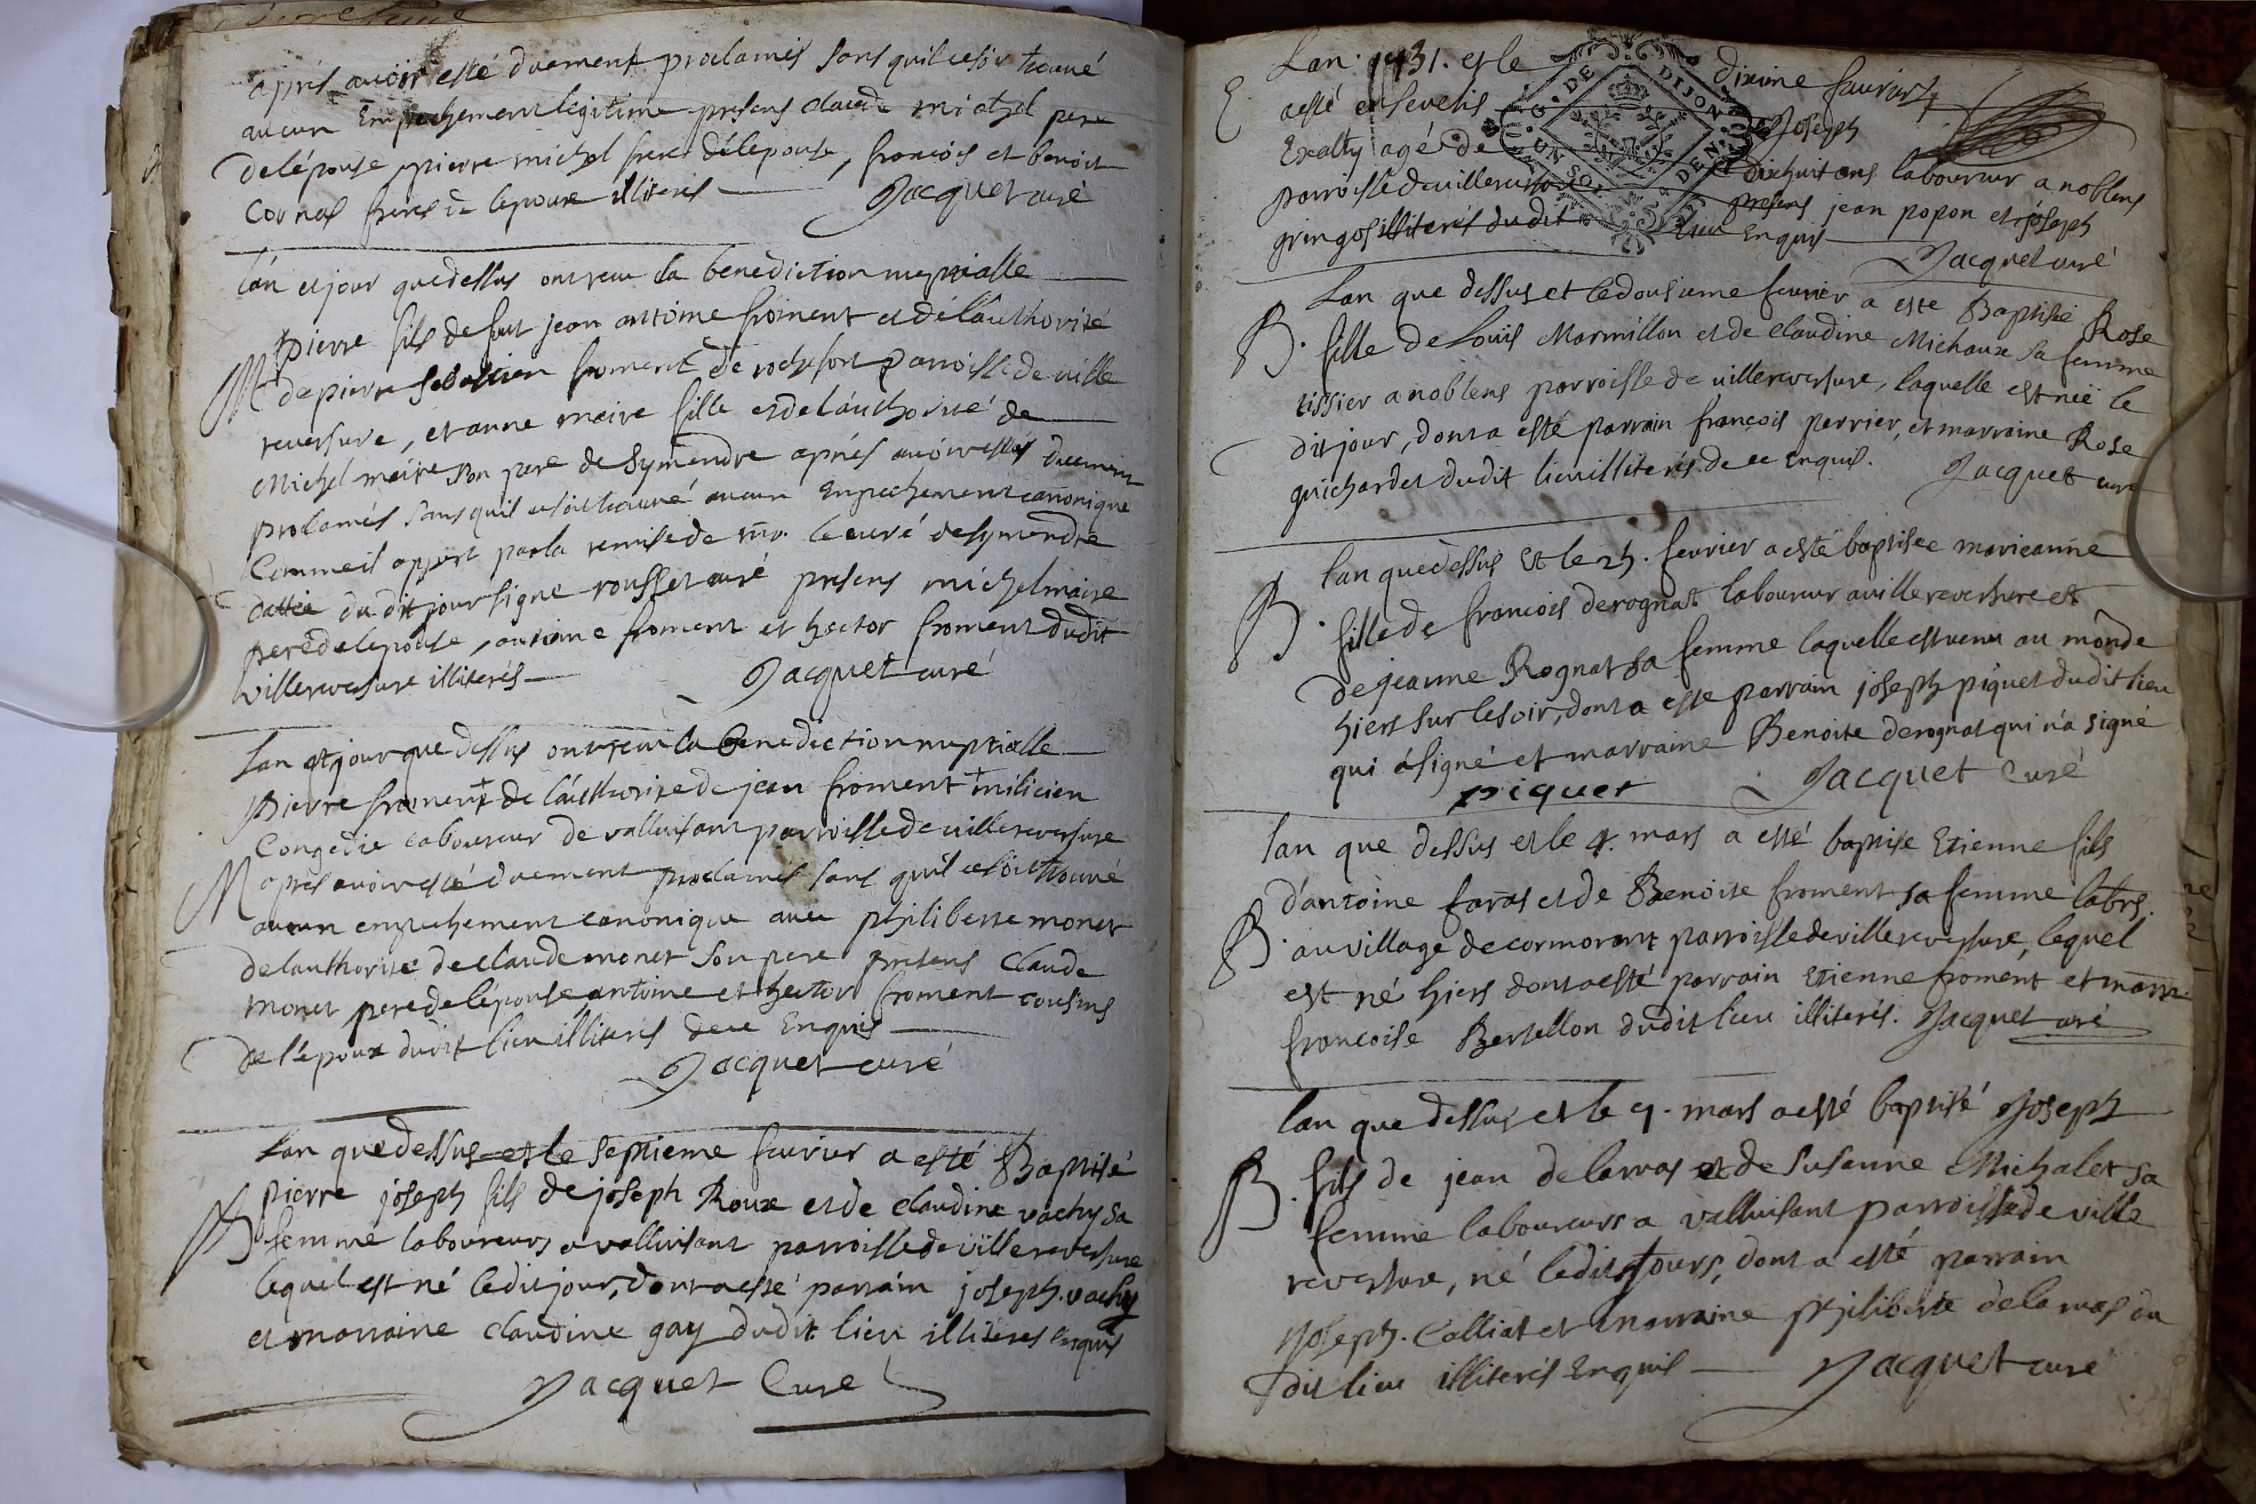 apres avoir esté duement proclamés sans quil se soit trouvé
aucun Empechement legitime presens claude michel pere
de lépouse, pierre michel frere de lepouse, francois et benoit
Cornas freres de lepoux illiterés Jacquet curé
lán et jour que dessus ont receu la benediction nuptialle
M pierre fils de fut jean antoine froment et de láuthorité
de pierre sebastien froment de rochefort parroisse de ville
reversure, et anne maire fille et de láuthorité de
Michel maire son pere de Symandre aprés avoir estés duement
proclamés sans quil se soit trouvé aucun Enpechement canonique
Comme il appert par la remise de mr. le curé de symandre
dattée du dit jour signe rousset curé presens michel maire
pere de lepouse, antoine froment et hector froment dudit
villereversure illiterés Jacquet curé
Lan et jour que dessus ont receu la benediction nuptialle
Pierre froment de láuthorite de jean froment + milicien
Congedie laboureur de valluisant parroisse de villereversure
M apres avoir esté duement proclamés sans quil se soit trouvé
aucun enpechement canonique avec philiberte monet
de lauthorité de claude monet son pere presens Claude
monet pere de lépouse antoine et hector froment cousins
de l'époux dudit lieu illiterés de ce Enquis
Jacquet curé
Lan que dessus et le septieme fevrier a esté Baptisé
pierre joseph fils de joseph Roux et de claudine vachy sa
B femme laboureurs a valluisant parroisse de villereversure
lequel est né ledit jour, dont a esté parrain joseph vachy
et marraine claudine gay dudit lieu illiteres enquis
Jacquet Curé
Lan 1731. et le dixime favrier
E a esté ensevelis Joseph
Exalty agé de dixhuit ans laboureur a noblens
parroisse de villereversure presens jean popon et joseph
gringos illiterés du dit lieu Enquis
Jacquet curé
G. DE DIJON
UN SOL
DEN.
Lan que dessus et le dousieme fevrier a este Baptisée Rose
B. fille de Louis Marmillon et de claudine Michaux sa femme
tissier a noblens parroisse de villereversure, laquelle est née le
dit jour, dont a esté parrain françois perrier, et marraine Rose
guichardet dudit lieu illiterés de ce Enquis. Jacquet curé
lan que dessus et le 25. fevrier a esté baptisee marieanne
B. fille de francois derognat laboureur a villereversure et
de jeanne Rognat sa femme laquelle est venu au mônde
hiers sur le soir, dont a esté parrain joseph piquet dudit lieu
qui á signé et marraine Benoite derognat qui n'a signé
piquet Jacquet Curé
lan que dessus et le 4. mars a esté baptise Etienne fils
d'antoine faras et de Benoite froment sa femme labrs.
B. au village de cormorant parroisse de villereversure, lequel
est né hiers dont a esté parrain Etienne froment et marr.
françoise Bertellon dudit lieu illiterés. Jacquet curé
lan que dessus et le 9. mars a esté baptisé Joseph
B. fils de jean delarras et de Susanne Michalet sa
femme laboureurs a valluisant parroisse de ville
reversure, né ledit jours, dont a esté parrain
Joseph Calliat et marraine philiberte delarras du
dit lieu illiterés Enquis Jacquet curé